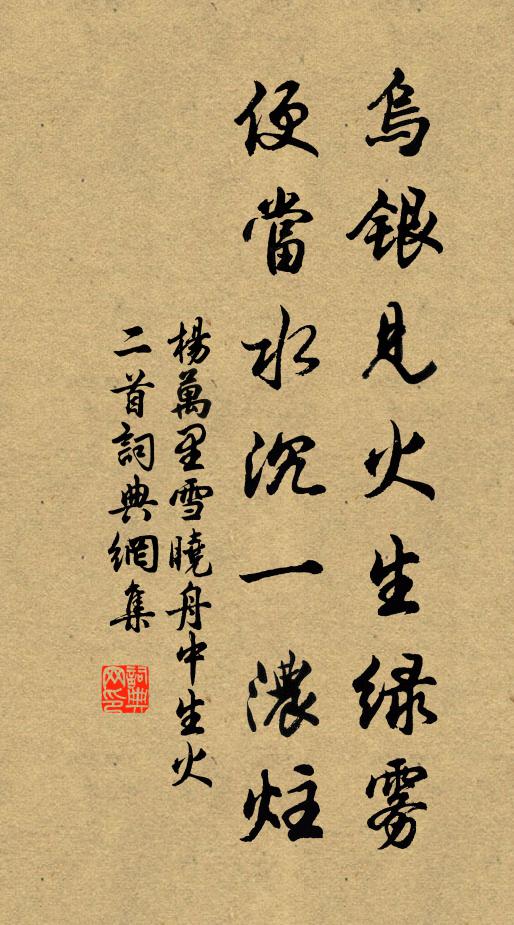 烏银見火生绿雾
便當水沉一濃炷
楊萬里雪曉舟中生火
二首詞典網集
詞典
网印